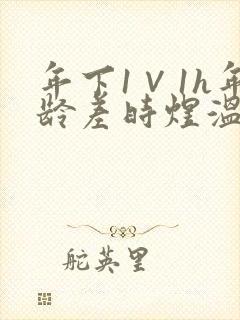 年下1V1h年
龄差时煜温
舵英里